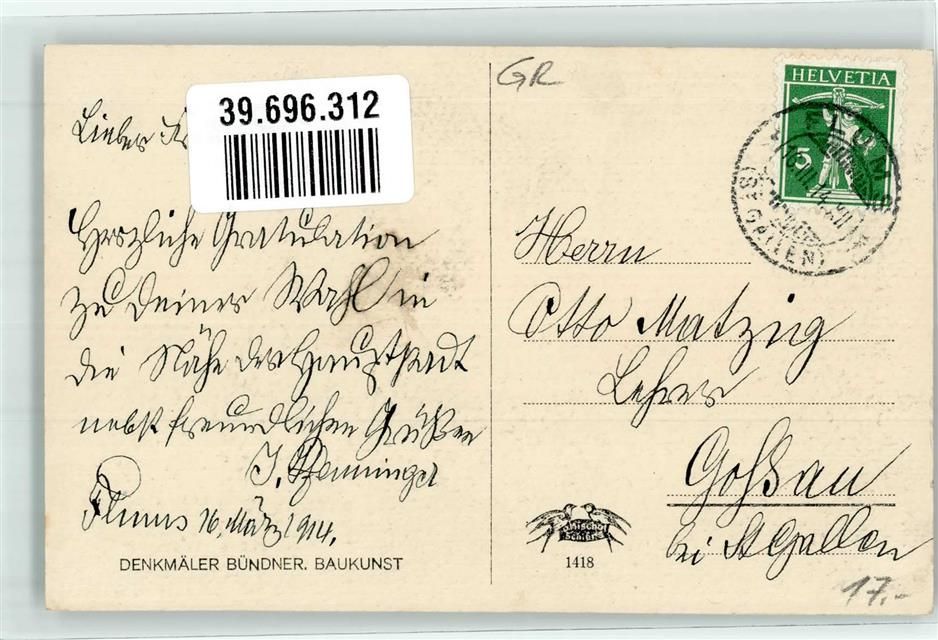 GR
39.696.312
HELVETIA
5
FLUMS
(ST. GALLEN)
Lieber
Herzliche Gratulation
zu deiner Wahl in
die Nähe der Hauptstadt
nebst freundlichen Grüßen
Flums 16. März 1914.
DENKMÄLER BÜNDNER. BAUKUNST
Herrn
Otto Matzig
Lehrer
Goßau
bei St Gallen
1418
17.-